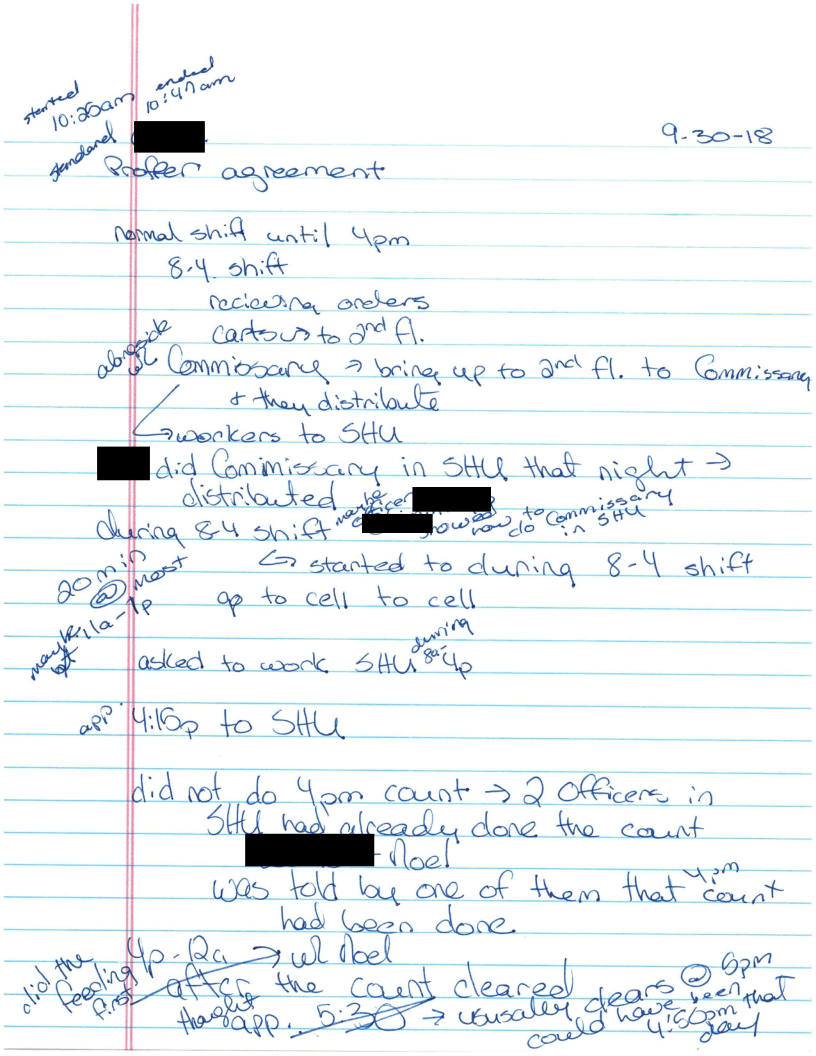 started 10:20am
ended 10:47am
standard
9-30-18
Proffer agreement
normal shift until 4pm
8-4 shift
recieving orders
to 2nd fl.
alongside w/ Commissary → bring up to 2nd fl. to Commissary
+ they distribute
↳ workers to SHU
did Commissary in SHU that night →
distributed
maybe officer
showed how to do Commissary in SHU
during 8-4 shift
↳ started to during 8-4 shift
20 min @ most
go to cell to cell
maybe 11a-1p
asked to work SHU during 8a-4p
app. 4:15p to SHU
did not do 4pm count → 2 Officers in
SHU had already done the count
- Noel
was told by one of them that 4pm count
had been done
4p-12a → w/ Noel
did the feeding first
after the count cleared
thought app. 5:30 → ususally clears @ 5pm
could have been 4:50pm that day